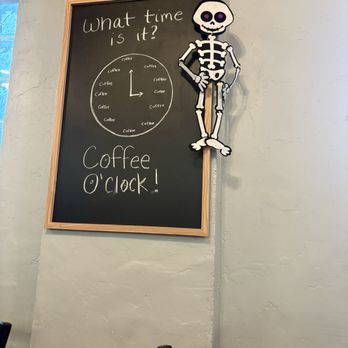 What time
is it?
Coffee
Coffee Coffee
Coffee Coffee
Coffee Coffee
Coffee Coffee
Coffee Coffee
Coffee
Coffee
O'Clock!